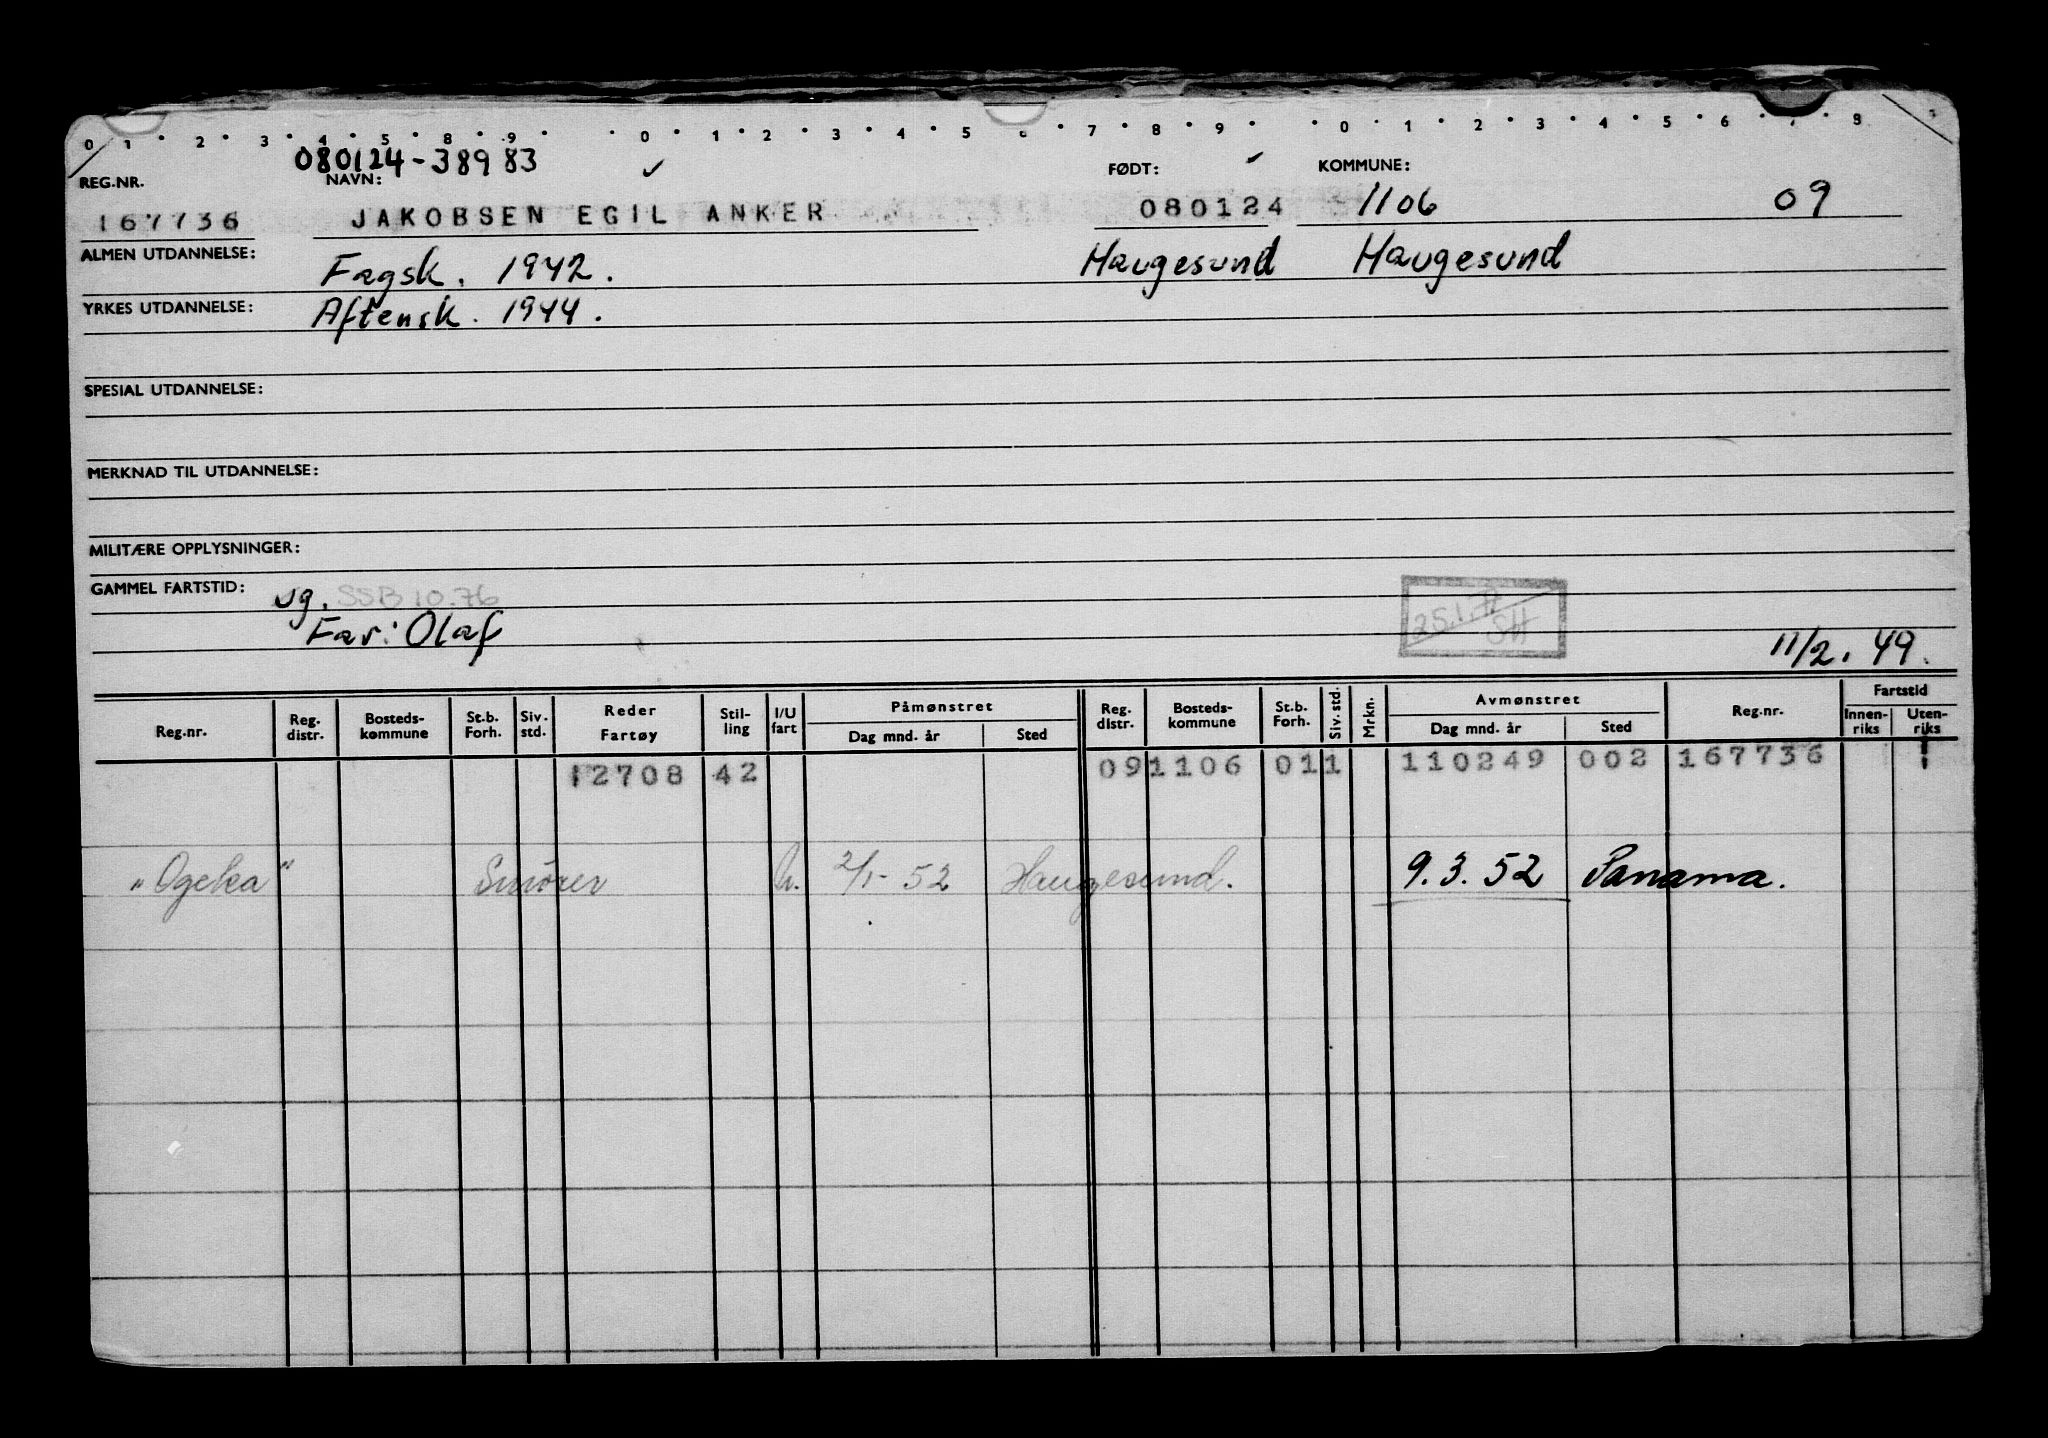 0 1 2 3 4 5 8 9 0 1 2 3 4 5 6 7 8 9 0 1 2 3 4 5 6 7 8
080124-38983
REG.NR. NAVN: FØDT: KOMMUNE:
167736 JAKOBSEN EGIL ANKER 080124 1106 09
ALMEN UTDANNELSE: Fagsk. 1942. Haugesund Haugesund
YRKES UTDANNELSE: Aftensk. 1944.
SPESIAL UTDANNELSE:
MERKNAD TIL UTDANNELSE:
MILITÆRE OPPLYSNINGER:
GAMMEL FARTSTID: sg. SSB 10.76
Far: Olaf
11/2. 49.
Reg.nr. Reg. distr. Bosteds-kommune St.b. Forh. Siv. std. Reder Fartøy Stil-ling I/U fart Påmønstret Dag mnd. år Sted Reg. distr. Bosteds-kommune St.b. Forh. Siv. std. Mrkn. Avmønstret Dag mnd. år Sted Reg.nr. Fartstid Innen-riks Uten-riks
12708 42 09 1106 01 1 110249 002 167736 1
"Ogeka" Smører U. 2/1- 52 Haugesund. 9.3.52 Panama.